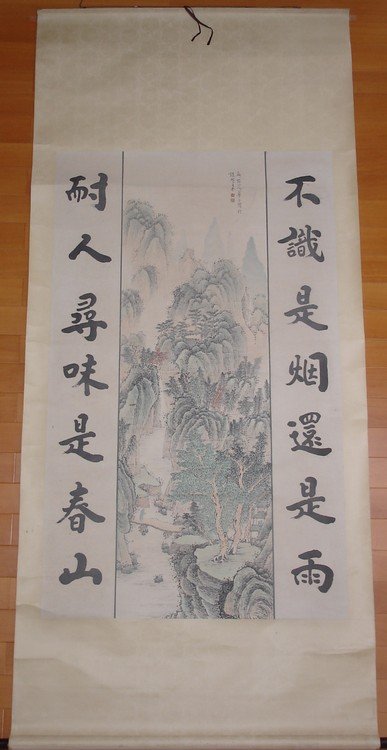 不識是烟還是雨
耐人尋味是春山